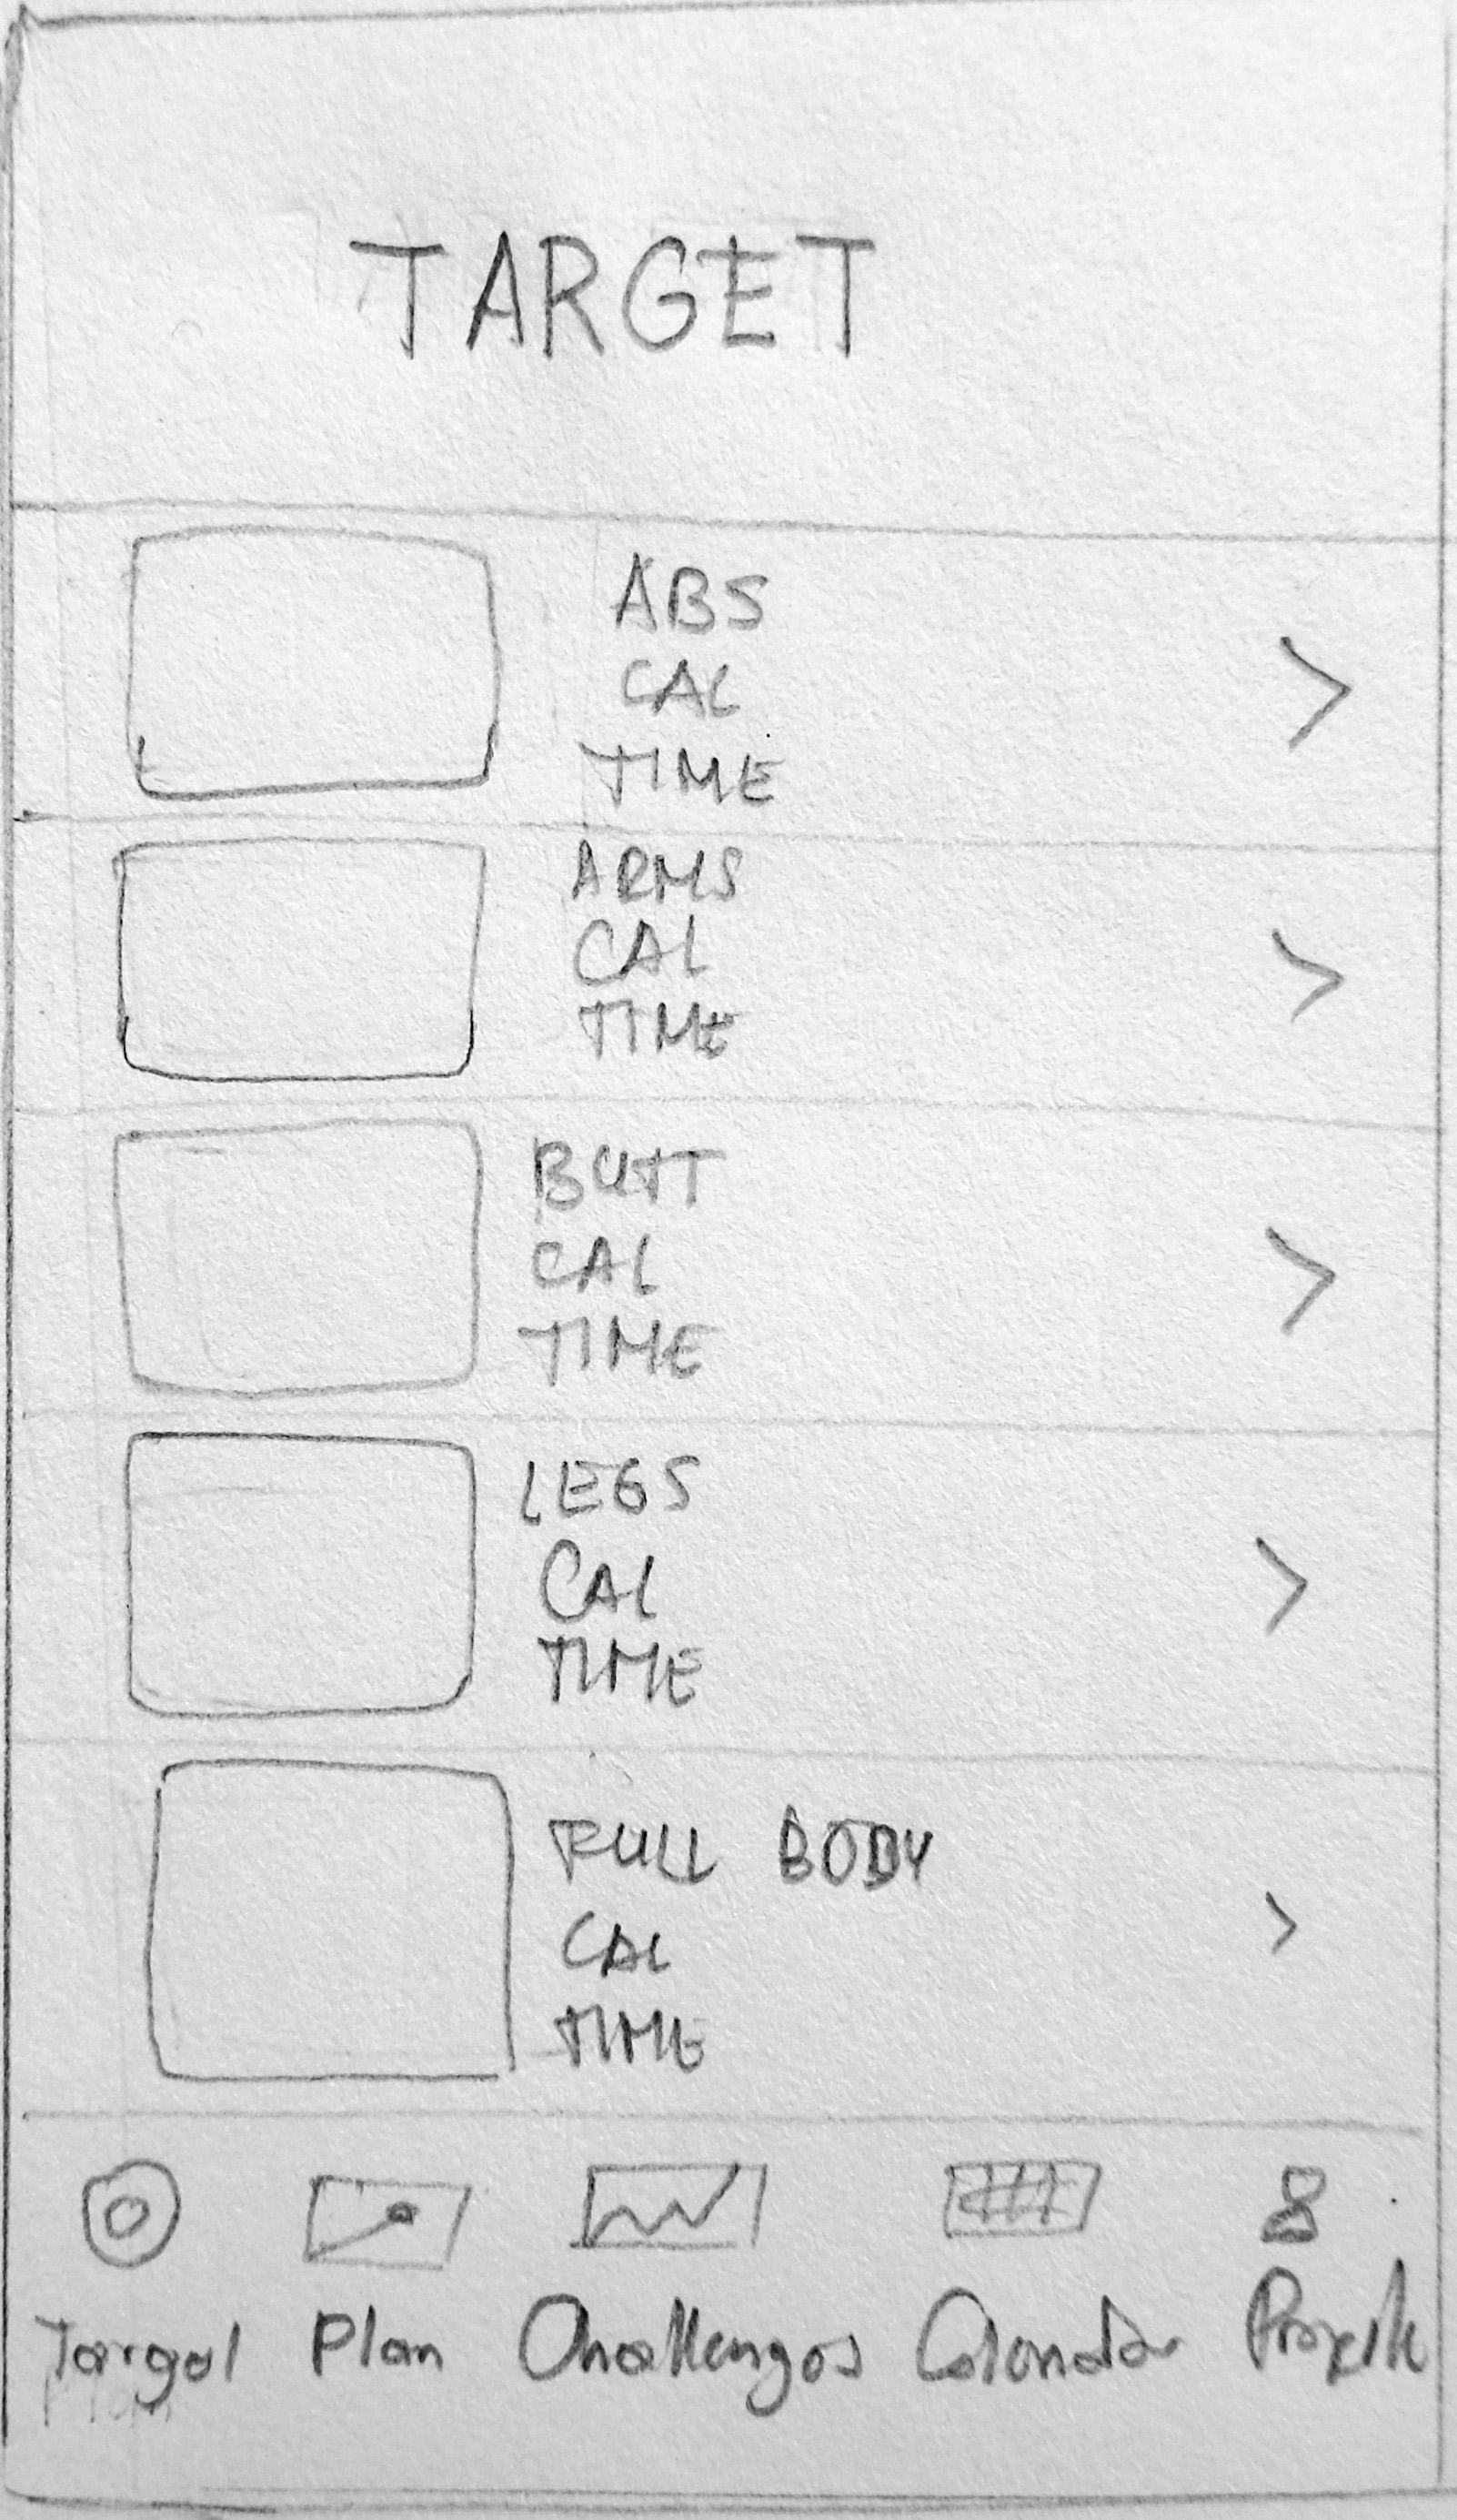 TARGET
ABS
CAL
TIME
ARMS
CAL
TIME
BUTT
CAL
TIME
LEGS
CAL
TIME
FULL BODY
CAL
TIME
Target Plan Challenges Calendar Profile
Plan